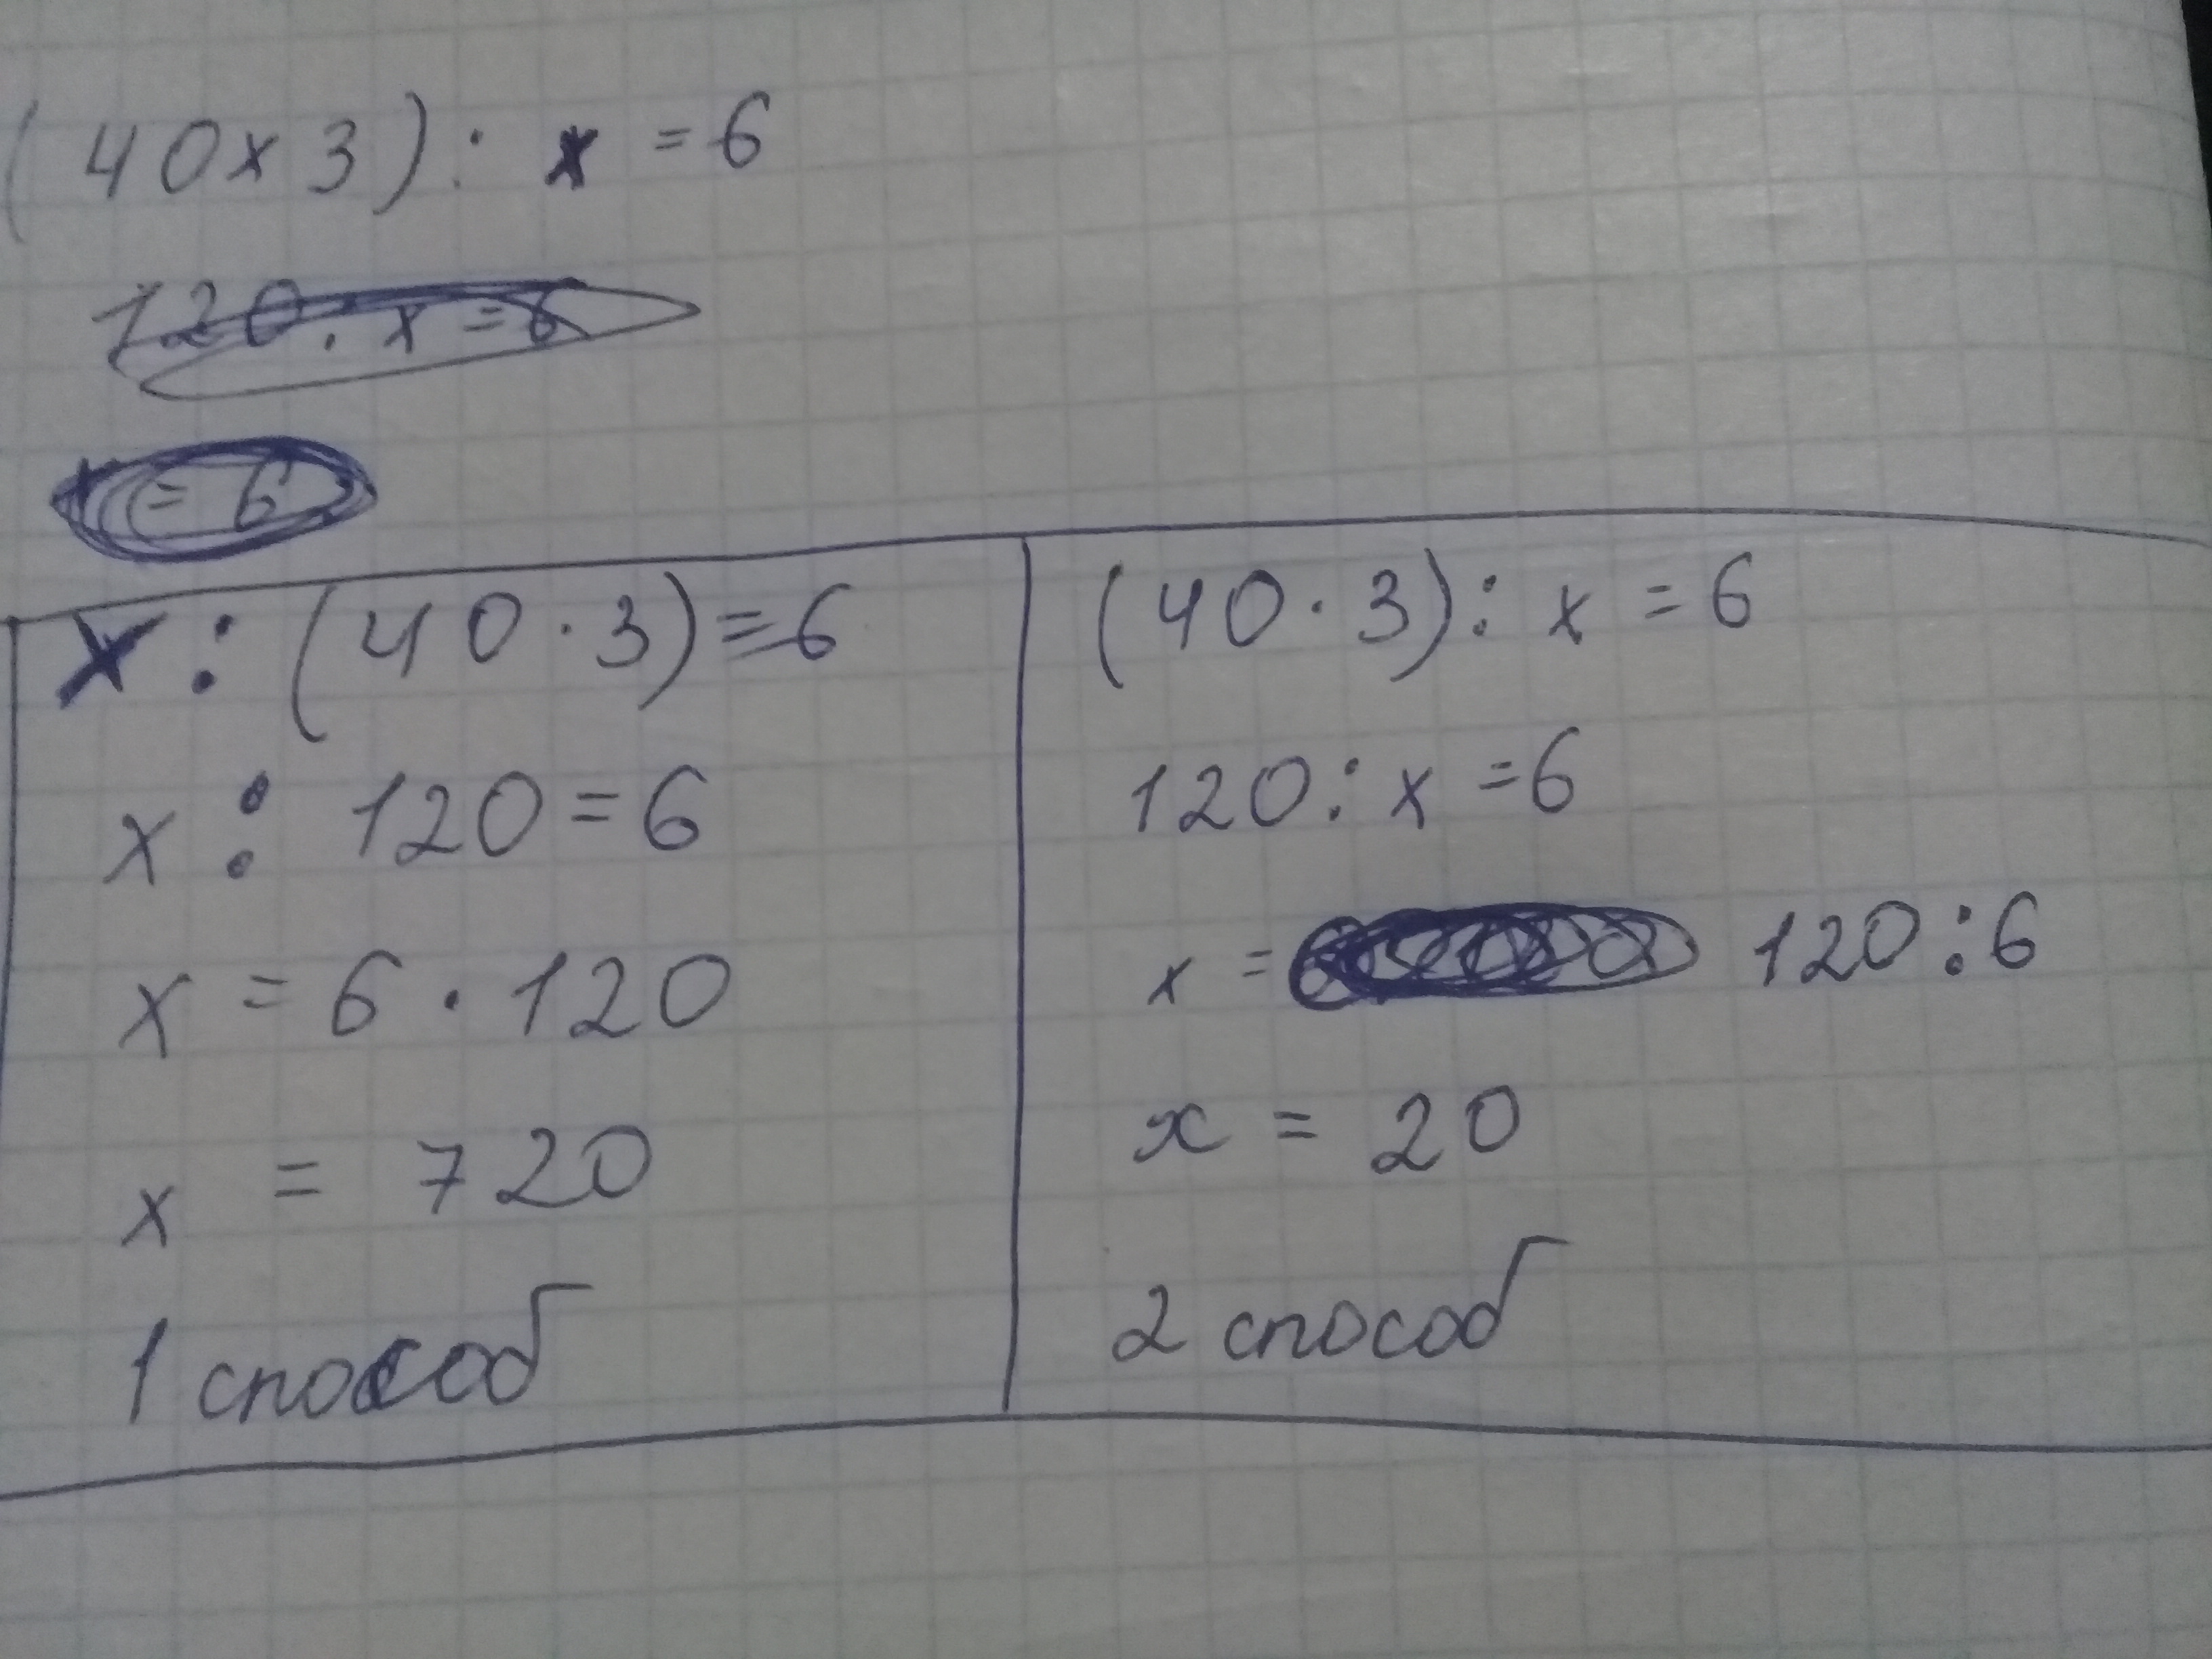 (40x3): x = 6
120 : x = 6
= 6
x : (40 · 3) = 6
x : 120 = 6
x = 6 · 120
x = 720
1 способ
(40 · 3) : x = 6
120 : x = 6
x = 120 : 6
x = 20
2 способ